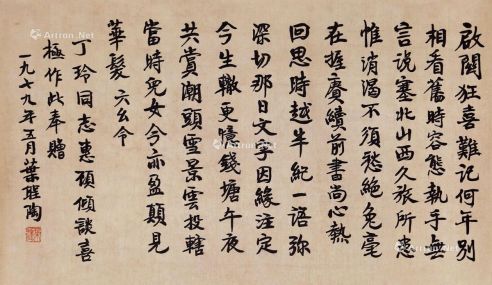 啟關狂喜難記何年別
相看舊時容態執手無
言說塞北山西久旅所患
惟消渴不須愁絕兔毫
在握賡續前書尚心熱
回思時越半紀一語彌
深切那日文字因緣注定
今生轍更憶錢塘午夜
共賞潮頭雪景雲投轄
當時兒女今亦盈顛見
華髮 六幺令
丁玲同志惠顧傾談喜
極作此奉贈
一九七九年五月葉聖陶
Artron.Net
Artron.Net